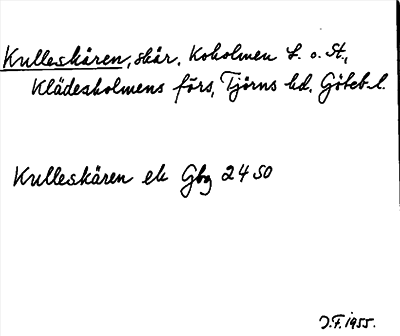 Kulleskären, skär, Koholmen L. o. St.,
Klädesholmens förs, Tjörns hd. Göteb. l.
Kulleskären ek Gbg 24 SO
J.F. 1955.